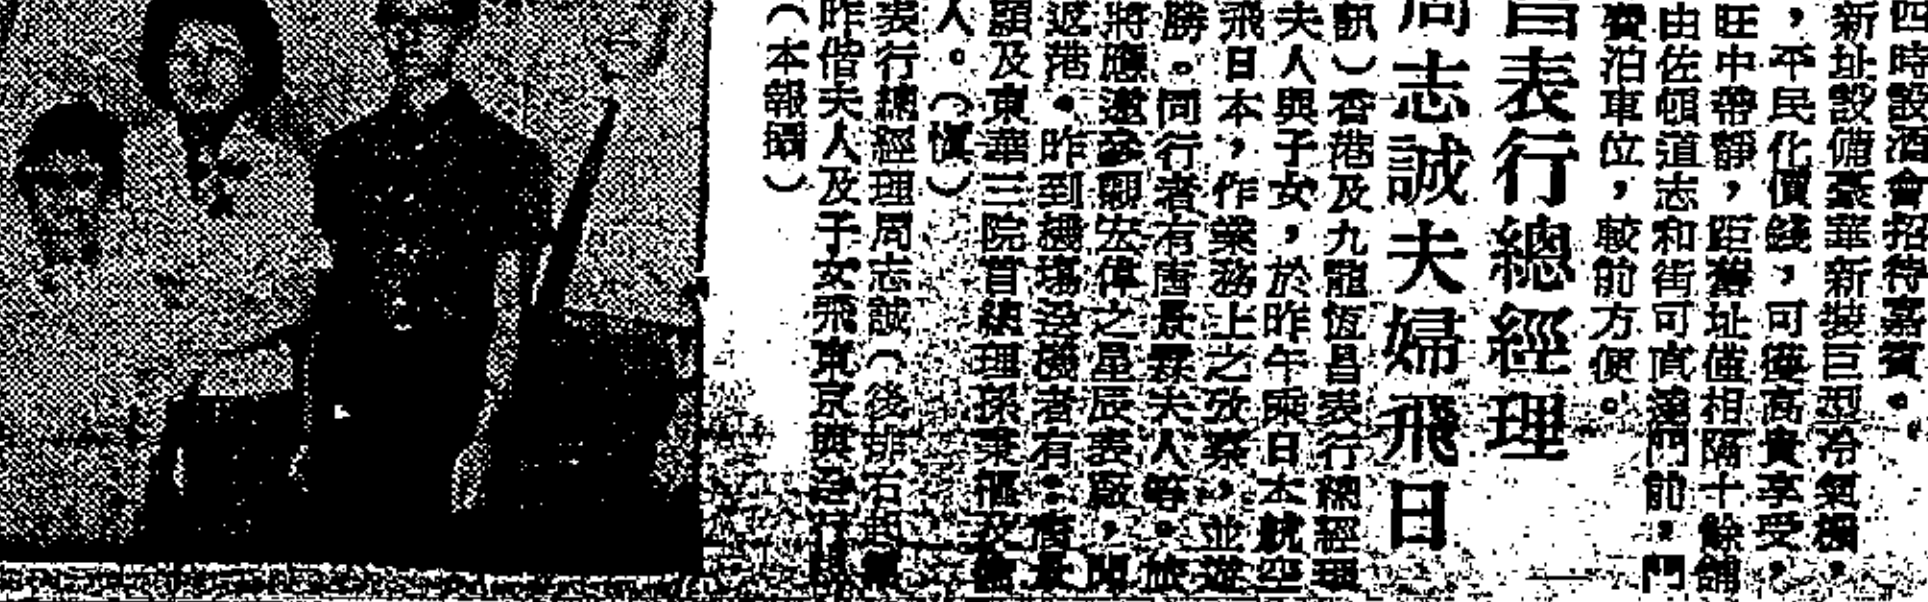 四時設酒會招待嘉賓。
新址設備豪華新裝巨型冷氣機，
，平民化價錢，可獲高貴享受，
旺中帶靜，距舊址僅相隔十餘舖
由佐頓道志和街可直達門前，門
賓泊車位，較前方便。
昌表行總經理
周志誠夫婦飛日
訊）香港及九龍恆昌表行總經理
夫人與子女，於昨午乘日本航空
飛日本，作業務上之攷察，並遊
勝。同行者有唐景霖夫人等。旅
將應邀參觀宏偉之星辰表廠，聞
返港。昨到機塲送機者有：唐景
顧及東華三院首總理孫秉樞及
人。（慎）
表行總經理周志誠（後排右
昨偕夫人及子女飛東京與
（本報攝）